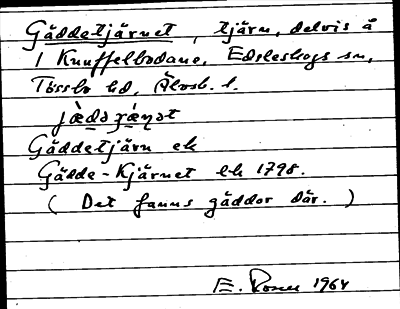 Gäddetjärnet, tjärn, delvis å
1 Knuffelbodane, Edsleskogs sn,
Tössbo hd, Älvsb. l.
Gäddetjärn ek
Gädde-Kjärnet lk 1798.
(Det fanns gäddor där.)
E. Rosen 1964